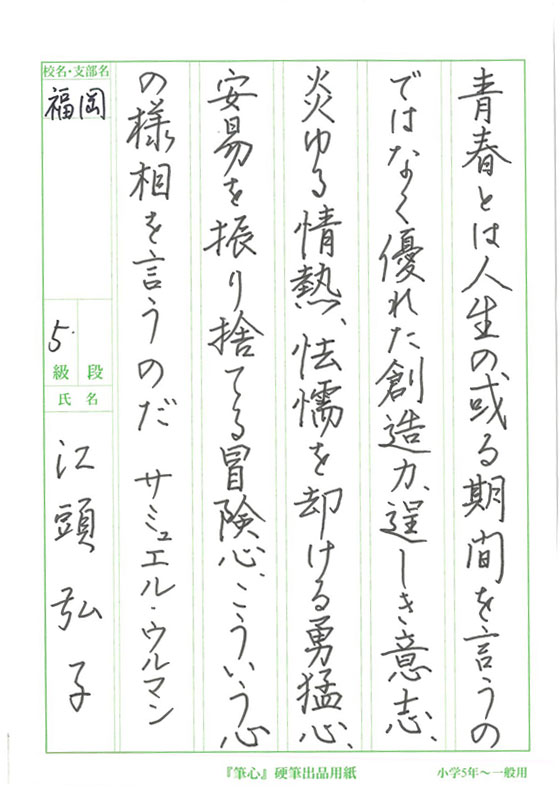 青春とは人生の或る期間を言うの
ではなく優れた創造力、逞しき意志、
炎ゆる情熱、怯懦を却ける勇猛心、
安易を振り捨てる冒険心、こういう心
の様相を言うのだ サミュエル・ウルマン
校名・支部名
福岡
5
級 段
氏 名
江頭 弘子
『筆心』硬筆出品用紙
小学5年〜一般用